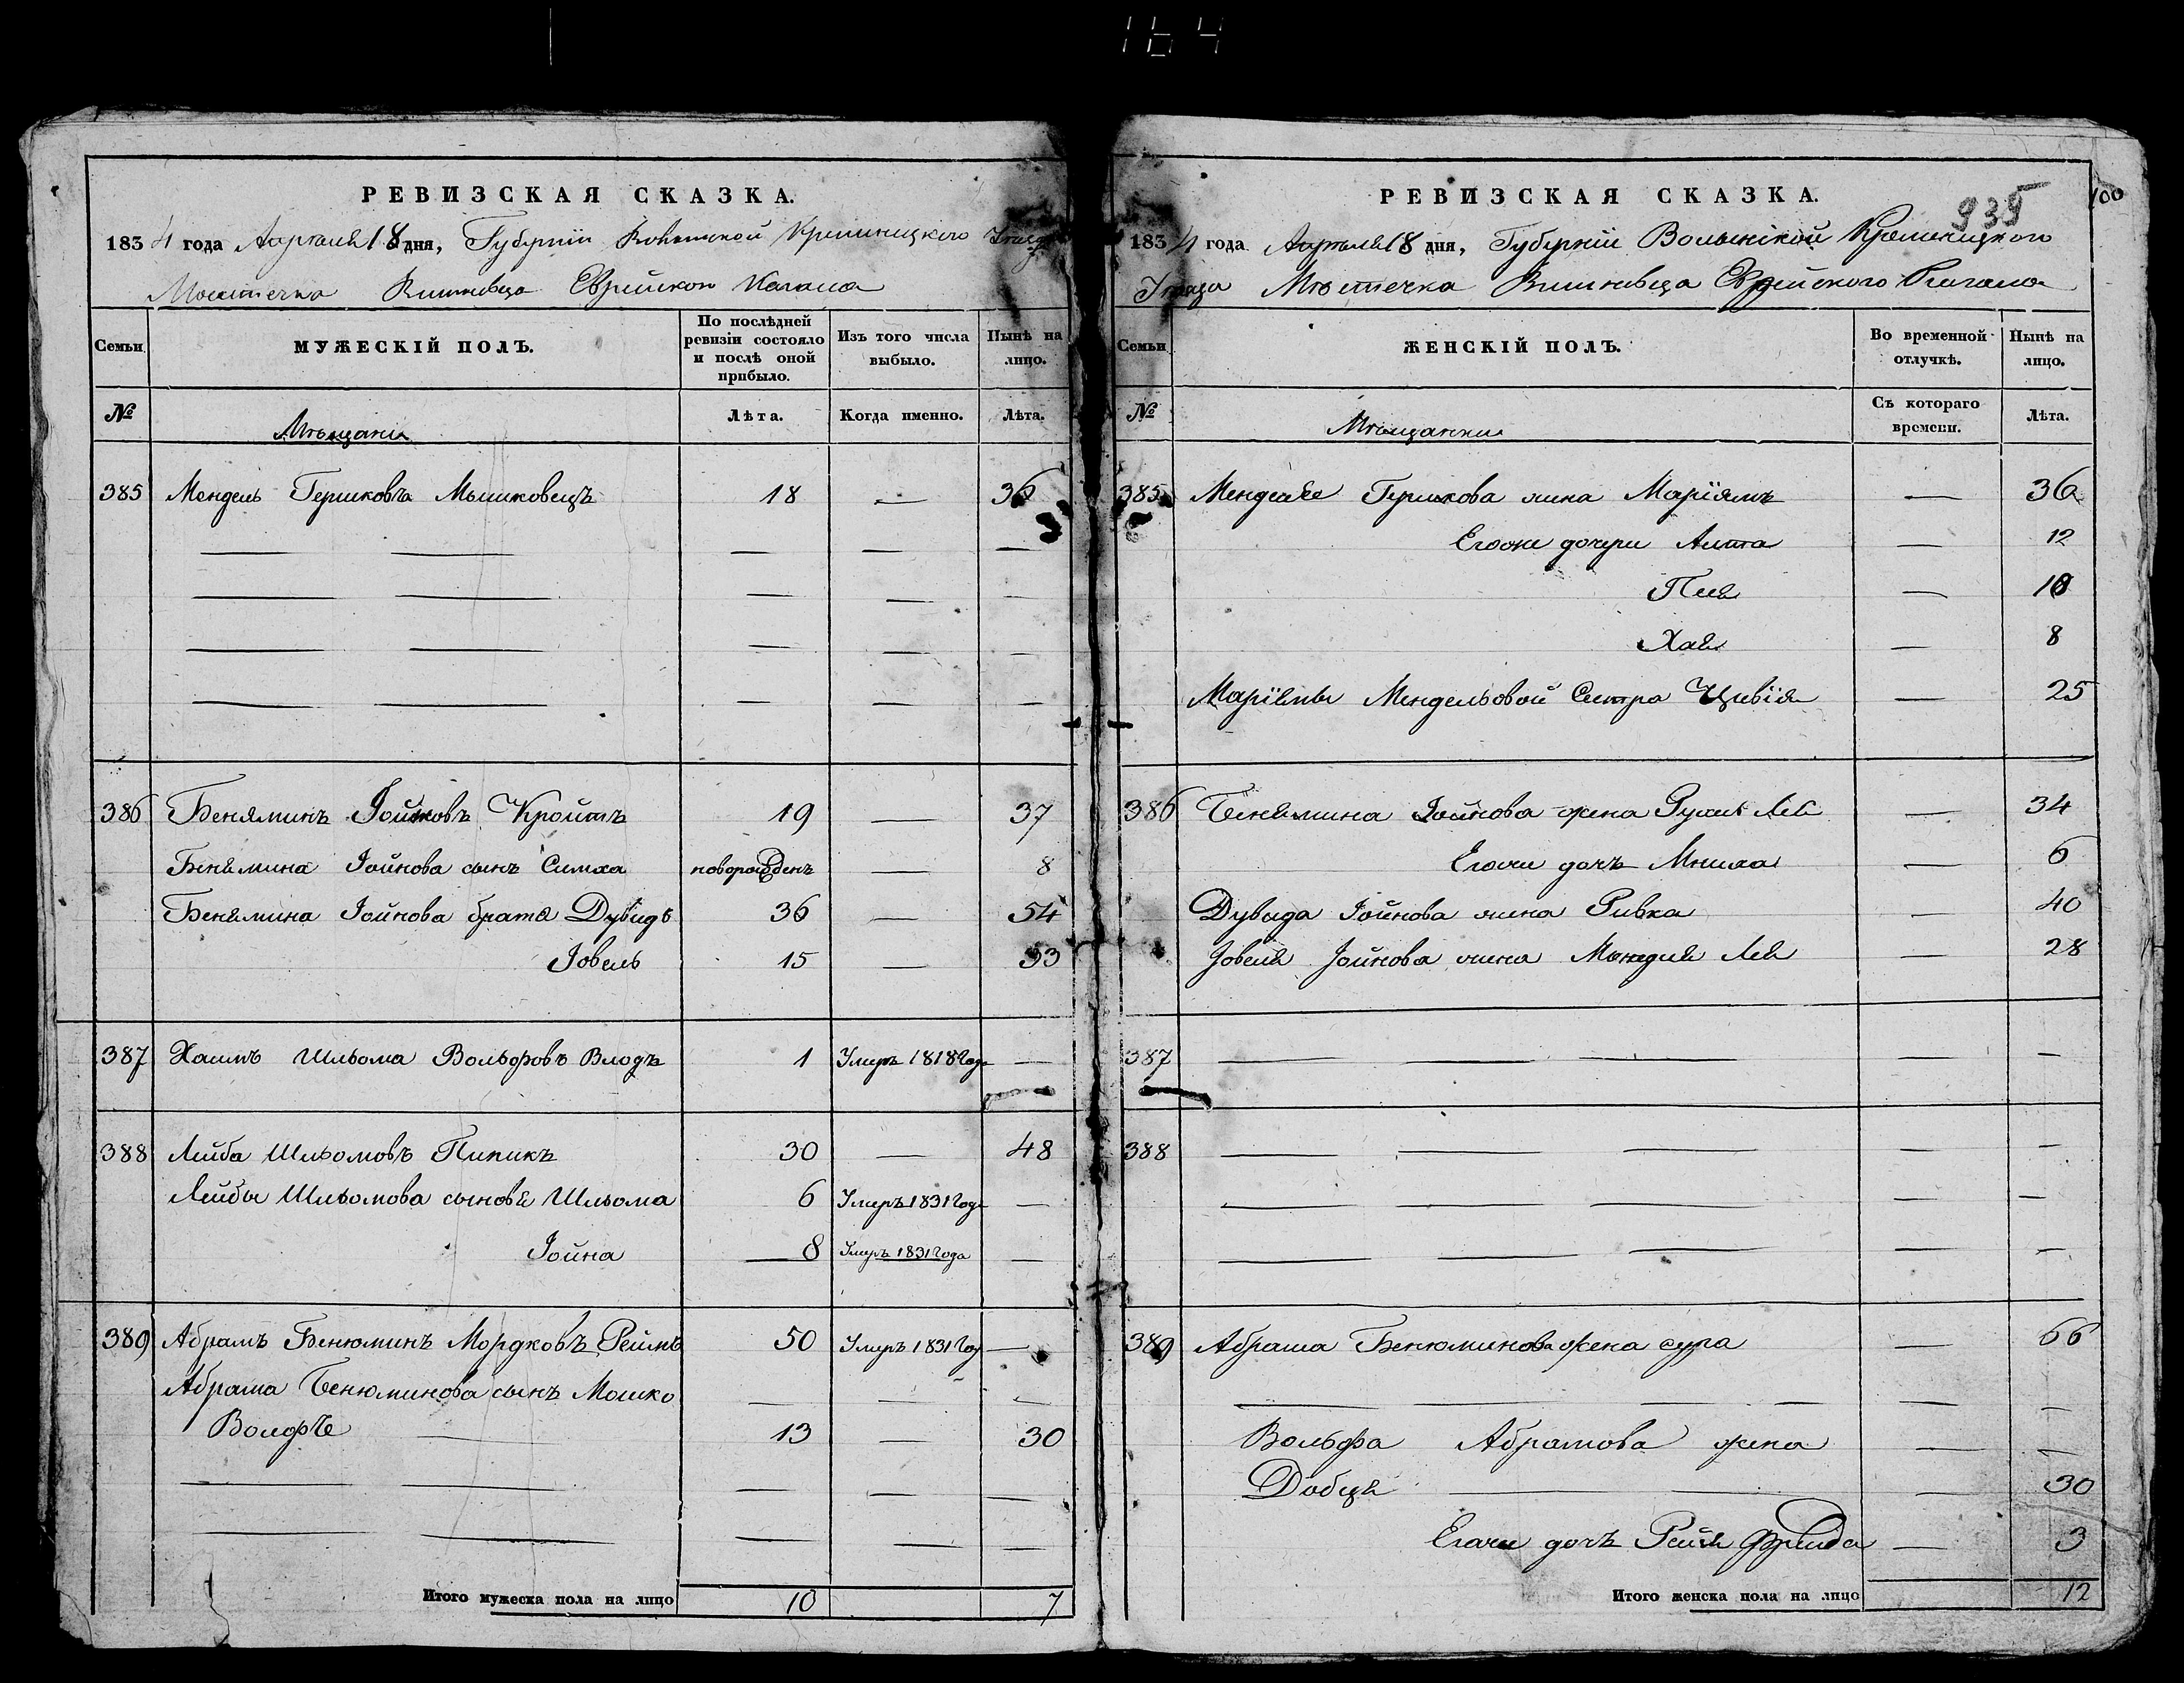 164
РЕВИЗСКАЯ СКАЗКА.
1834 года Апреля 18 дня, Губернiи Волынской Кременицкого Уезда
Местечка Вишневца Еврейского Кагала
Семьи
МУЖЕСКIЙ ПОЛЪ.
По послѣдней ревизiи состояло и послѣ оной прибыло.
Изъ того числа выбыло.
Нынѣ на лицо.
№
Мѣщани
Лѣта.
Когда именно.
Лѣта.
385 Мендель Гершковъ Мышковецъ 18 — 36
386 Беняминъ Iойновъ Кройтъ 19 — 37
Бенямина Iойнова сынъ Симха новорожденъ — 8
Бенямина Iойнова братя Дувидъ 36 — 54
Iовель 15 — 33
387 Хаимъ Шльома Вольфовъ Влодъ 1 Умеръ 1818 Года —
388 Лейба Шльомовъ Пипикъ 30 — 48
Лейбы Шльомова сыновя Шльома 6 Умеръ 1831 Года —
Iойна 8 Умеръ 1831 Года —
389 Абрамъ Бенюминъ Мордковъ 50 Умеръ 1831 Год —
Абрама Бенюминова сынъ Мошко — — —
Вольфъ 13 — 30
Итого мужеска пола на лицо 10 7
РЕВИЗСКАЯ СКАЗКА.
935
100
1834 года Апреля 18 дня, Губернiи Волынской Кременицкого
Уезда Мѣстечка Вишневца Еврейского Кагала
Семьи
ЖЕНСКIЙ ПОЛЪ.
Во временной отлучкѣ.
Нынѣ на лицо.
№
Мѣщанки
Съ котораго времени.
Лѣта.
385 Менделя Гершкова жина Марiямъ — 36
Егоже дочери Алта — 12
Пея — 10
Хая — 8
Марiямы Мендельовой Сестра Цивiя — 25
386 Бенямина Iойнова жена Рухля Лея — 34
Егожи дочъ — 6
Дувида Iойнова жина Ривка — 40
Iовеля Iойнова жина Лея — 28
387 — — — —
388 — — — — —
389 Абрама Бенюминова жена сура — 66
Вольфа Абрамова жена — —
Добця — 30
Егожи дочъ Рейзя Фрейда — 3
Итого женска пола на лицо 12